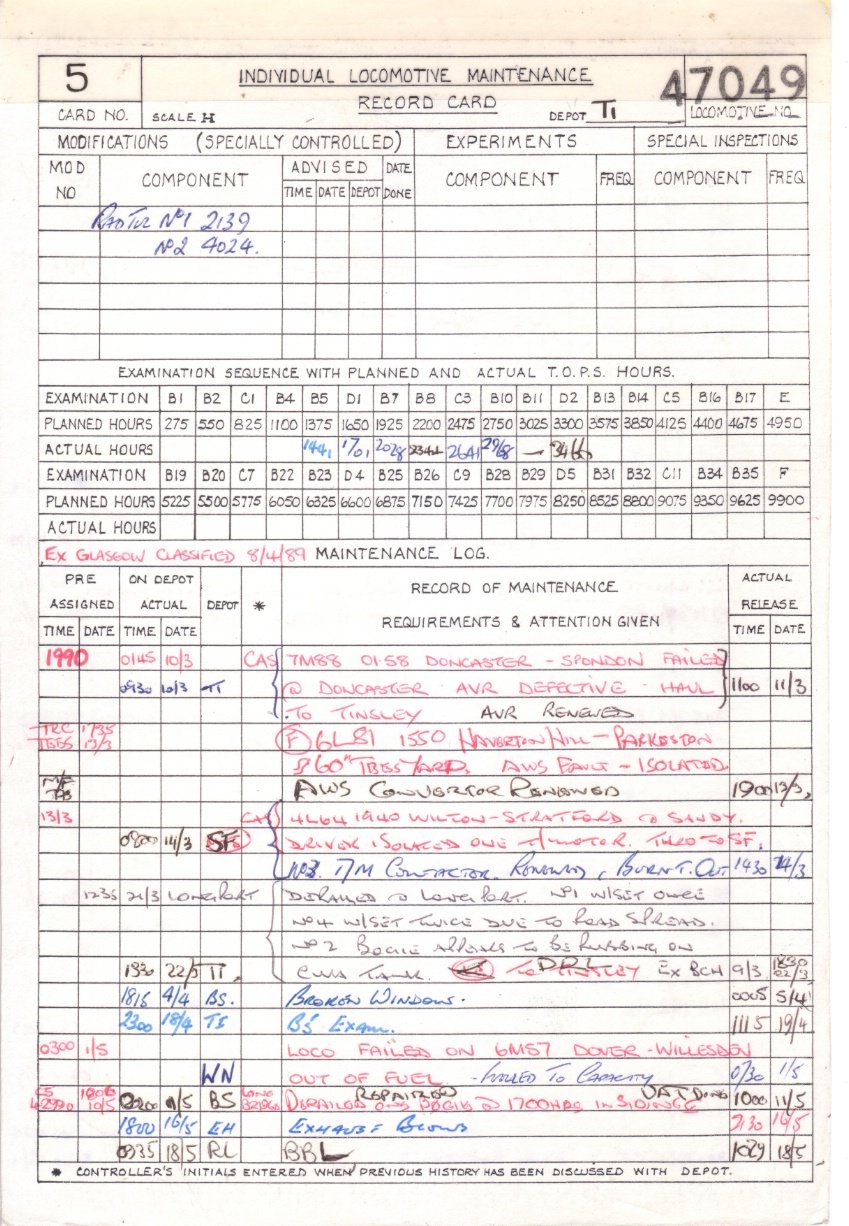 5 INDIVIDUAL LOCOMOTIVE MAINTENANCE 47049
RECORD CARD
CARD NO. SCALE H DEPOT TI LOCOMOTIVE NO
MODIFICATIONS (SPECIALLY CONTROLLED) EXPERIMENTS SPECIAL INSPECTIONS
MOD NO COMPONENT ADVISED DATE DONE COMPONENT FREQ COMPONENT FREQ
TIME DATE DEPOT
Nº1 2139
Nº2 4024.
EXAMINATION SEQUENCE WITH PLANNED AND ACTUAL T.O.P.S. HOURS.
EXAMINATION B1 B2 C1 B4 B5 D1 B7 B8 C3 B10 B11 D2 B13 B14 C5 B16 B17 E
PLANNED HOURS 275 550 825 1100 1375 1650 1925 2200 2475 2750 3025 3300 3575 3850 4125 4400 4675 4950
ACTUAL HOURS 1441 1701 2028 2344 2641 2968 — 3466
EXAMINATION B19 B20 C7 B22 B23 D4 B25 B26 C9 B28 B29 D5 B31 B32 C11 B34 B35 F
PLANNED HOURS 5225 5500 5775 6050 6325 6600 6875 7150 7425 7700 7975 8250 8525 8800 9075 9350 9625 9900
ACTUAL HOURS
EX GLASGOW CLASSIFIED 8/4/89 MAINTENANCE LOG.
PRE ASSIGNED ON DEPOT ACTUAL DEPOT * RECORD OF MAINTENANCE REQUIREMENTS & ATTENTION GIVEN ACTUAL RELEASE
TIME DATE TIME DATE TIME DATE
1990 0145 10/3 CAS 7M88 01.58 DONCASTER - SPONDON FAILED
0930 10/3 TI @ DONCASTER AVR DEFECTIVE HAUL 1100 11/3
TO TINSLEY AVR RENEWED
TRC 1735 (F) 6L81 1550 HAVERTON HILL - PARKESTON
TEES 13/3 60" TEES YARD. AWS FAULT - ISOLATED
AWS CONVERTOR RENEWED 1900 13/3
13/3 CAS 4L64 1940 WILTON-STRATFORD @ SANDY.
0800 14/3 SF DRIVER ISOLATED ONE T/MOTOR. THRO TO SF.
Nº3. T/M CONTACTOR. RENEWED, BURNT. OUT 1430 14/3
1235 21/3 LONGPORT DERAILED @ LONGPORT. Nº1 W/SET ONCE
Nº4 W/SET TWICE DUE TO ROAD SPREAD.
Nº2 BOGIE APPEARS TO BE RUBBING ON
1930 22/3 TI. CWA TANK. TO TINSLEY DRL EX BCH 9/3 1830 22/3
1815 4/4 BS. BROKEN WINDOWS. 0005 5/4
2300 18/4 TI B'S EXAM. 1115 19/4
0300 1/5 LOCO FAILED ON 6M57 DOVER - WILLESDEN
WN OUT OF FUEL - FUELLED TO CAPACITY 0730 1/5
10/5 0200 BS REPAIRED UAT DONE 1000 11/5
DERAILED ONE BOGIE @ 1700HRS IN SIDINGS
1800 16/5 EH EXHAUST BLOWS 2130 16/5
0935 18/5 RL BBL 1029 18/5
* CONTROLLER'S INITIALS ENTERED WHEN PREVIOUS HISTORY HAS BEEN DISCUSSED WITH DEPOT.